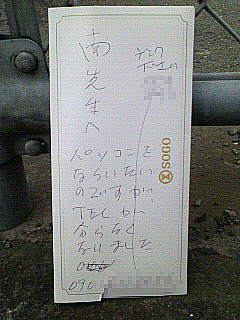 南先生へ
パソコンを
ならいたい
のですが、
TELが
分らなく
なりました
090
下さい
SOGO